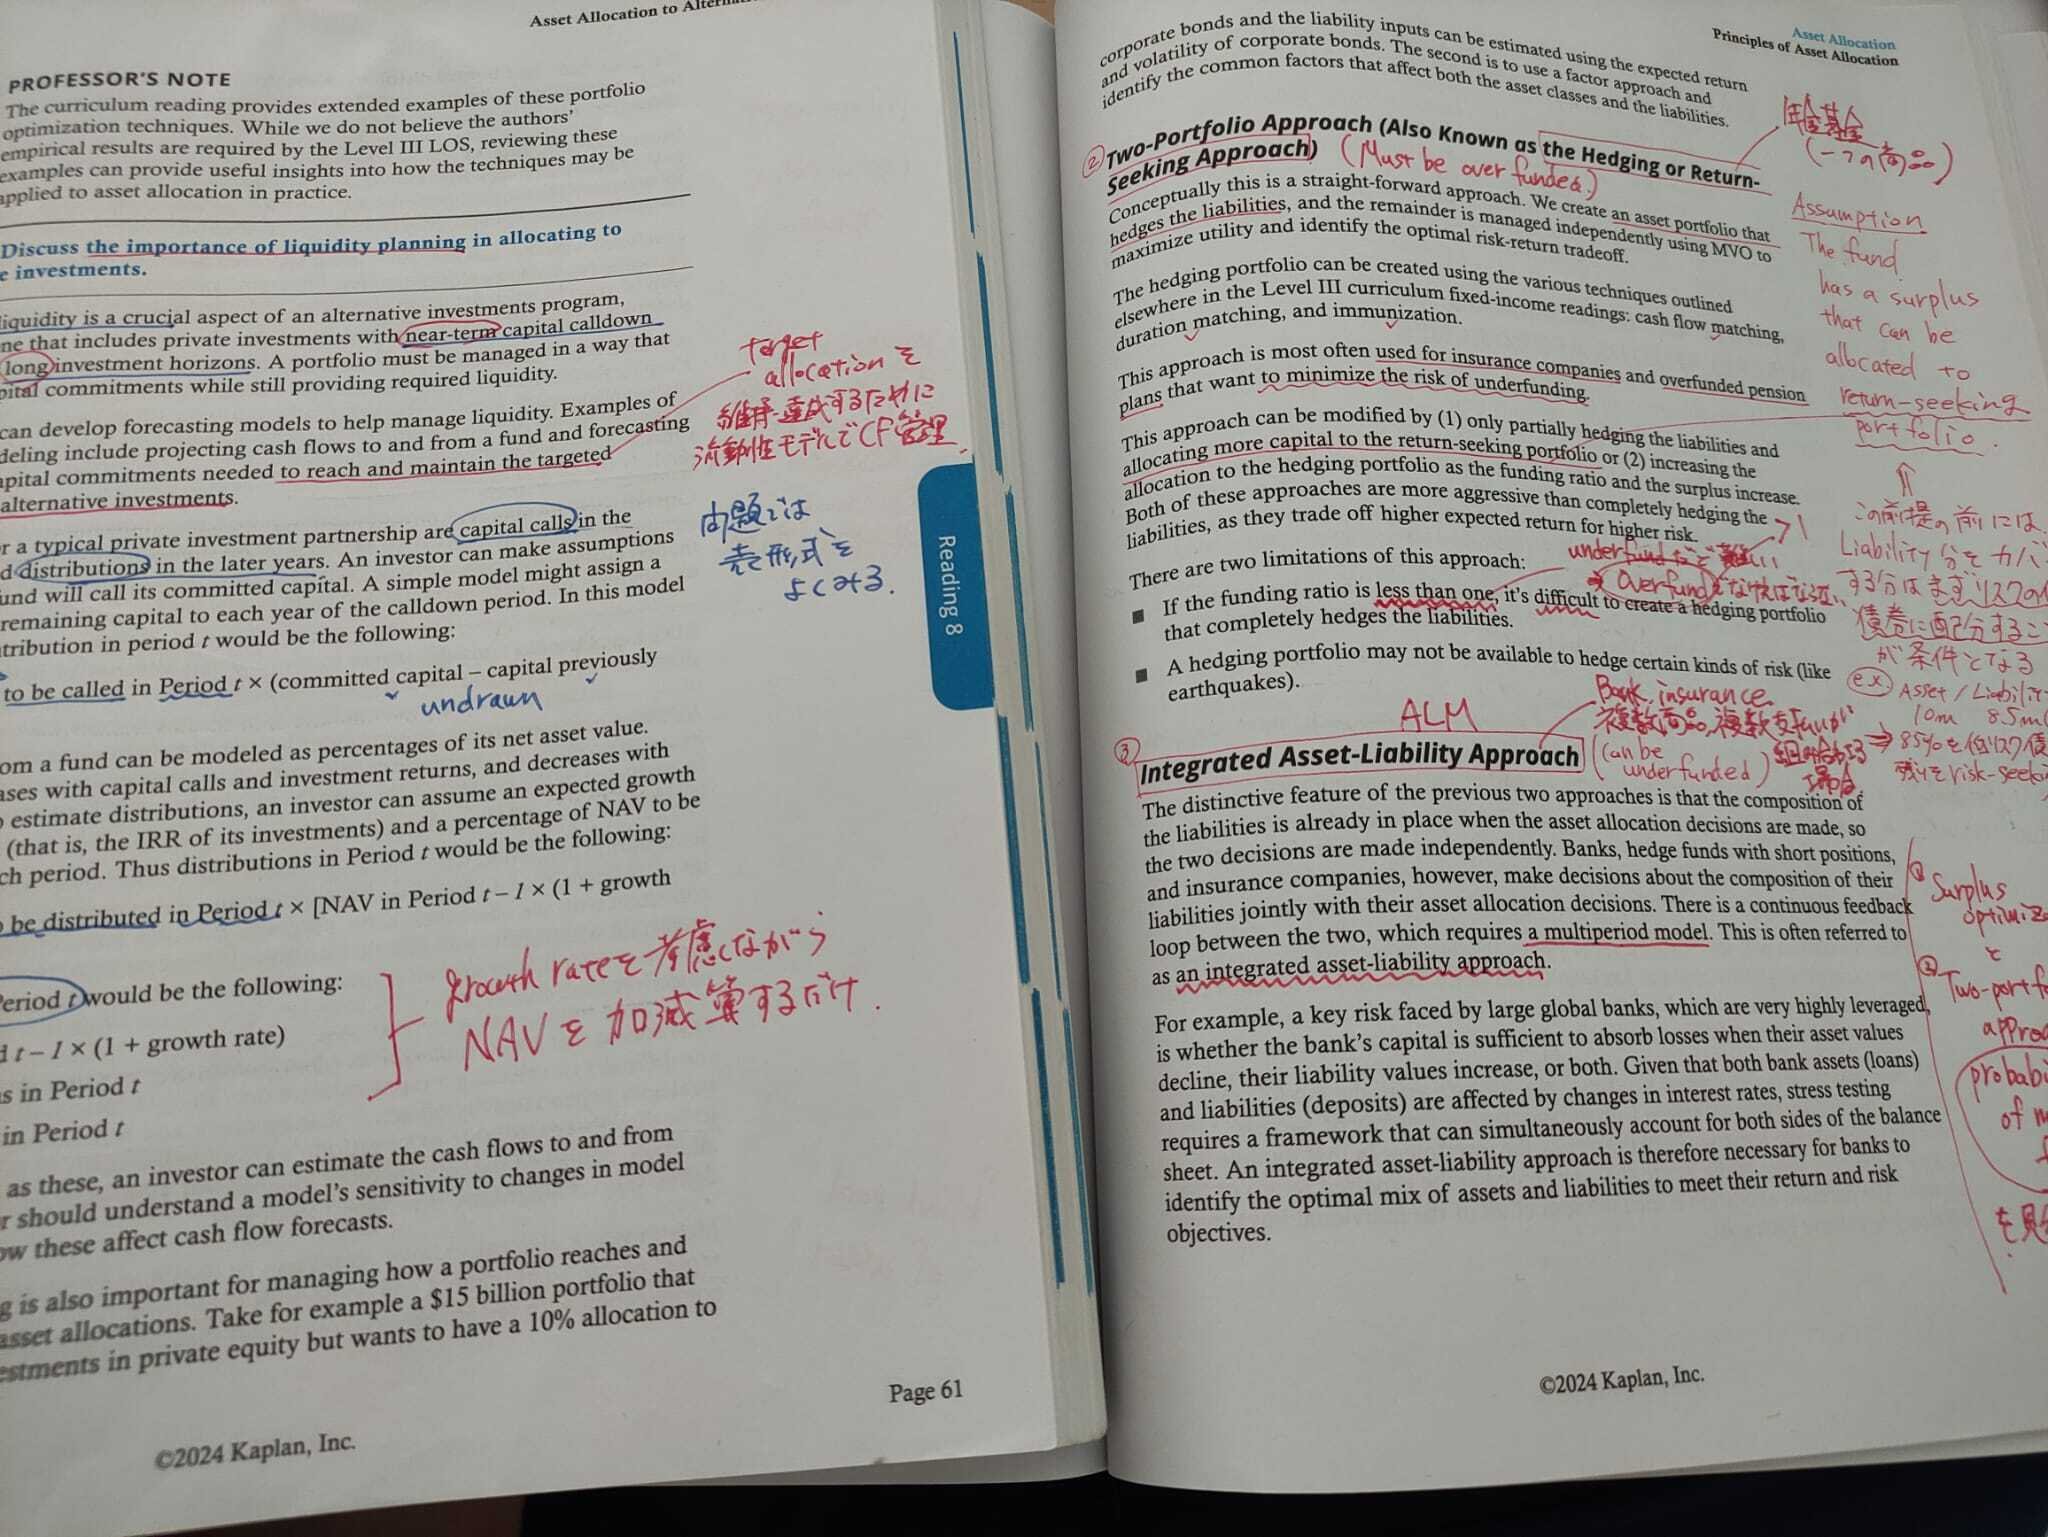 Asset Allocation to
PROFESSOR'S NOTE
The curriculum reading provides extended examples of these portfolio
optimization techniques. While we do not believe the authors'
empirical results are required by the Level III LOS, reviewing these
examples can provide useful insights into how the techniques may be
applied to asset allocation in practice.
Discuss the importance of liquidity planning in allocating to
e investments.
liquidity is a crucial aspect of an alternative investments program,
ne that includes private investments with near-term capital calldown
long investment horizons. A portfolio must be managed in a way that
pital commitments while still providing required liquidity.
can develop forecasting models to help manage liquidity. Examples of
deling include projecting cash flows to and from a fund and forecasting
apital commitments needed to reach and maintain the targeted
alternative investments.
target
allocationを
維持・達成するために
流動性モデルでCF管理
r a typical private investment partnership are capital calls in the
d distributions in the later years. An investor can make assumptions
und will call its committed capital. A simple model might assign a
remaining capital to each year of the calldown period. In this model
tribution in period t would be the following:
問題では
表形式を
よくみる.
to be called in Period t × (committed capital – capital previously
undrawn
om a fund can be modeled as percentages of its net asset value.
ases with capital calls and investment returns, and decreases with
o estimate distributions, an investor can assume an expected growth
(that is, the IRR of its investments) and a percentage of NAV to be
ch period. Thus distributions in Period t would be the following:
o be distributed in Period t × [NAV in Period t – 1 × (1 + growth
Period t would be the following:
d t – 1 × (1 + growth rate)
s in Period t
in Period t
growth rateを考慮しながら
NAVを加減算するだけ.
as these, an investor can estimate the cash flows to and from
r should understand a model's sensitivity to changes in model
ow these affect cash flow forecasts.
g is also important for managing how a portfolio reaches and
asset allocations. Take for example a $15 billion portfolio that
estments in private equity but wants to have a 10% allocation to
Page 61
©2024 Kaplan, Inc.
Reading 8
Asset Allocation
Principles of Asset Allocation
corporate bonds and the liability inputs can be estimated using the expected return
and volatility of corporate bonds. The second is to use a factor approach and
identify the common factors that affect both the asset classes and the liabilities.
② Two-Portfolio Approach (Also Known as the Hedging or Return-
Seeking Approach) (Must be overfunded.)
Conceptually this is a straight-forward approach. We create an asset portfolio that
hedges the liabilities, and the remainder is managed independently using MVO to
maximize utility and identify the optimal risk-return tradeoff.
The hedging portfolio can be created using the various techniques outlined
elsewhere in the Level III curriculum fixed-income readings: cash flow matching,
duration matching, and immunization.
This approach is most often used for insurance companies and overfunded pension
plans that want to minimize the risk of underfunding.
This approach can be modified by (1) only partially hedging the liabilities and
allocating more capital to the return-seeking portfolio or (2) increasing the
allocation to the hedging portfolio as the funding ratio and the surplus increase.
Both of these approaches are more aggressive than completely hedging the
liabilities, as they trade off higher expected return for higher risk.
There are two limitations of this approach:
■ If the funding ratio is less than one, it's difficult to create a hedging portfolio
that completely hedges the liabilities.
■ A hedging portfolio may not be available to hedge certain kinds of risk (like
earthquakes).
Assumption
The fund
has a surplus
that can be
allocated to
return-seeking
portfolio.
この前提の前には、
Liability分をカバ
する分はまずリスクの
債券に配分するこ
が条件となる
ex. Asset / Liabilit
10m 8.5m
⇒85%を低リスク債
残りをrisk-seeki
ALM
Bank, insurance
(can be
underfunded)
③ Integrated Asset-Liability Approach
The distinctive feature of the previous two approaches is that the composition of
the liabilities is already in place when the asset allocation decisions are made, so
the two decisions are made independently. Banks, hedge funds with short positions,
and insurance companies, however, make decisions about the composition of their
liabilities jointly with their asset allocation decisions. There is a continuous feedback
loop between the two, which requires a multiperiod model. This is often referred to
as an integrated asset-liability approach.
For example, a key risk faced by large global banks, which are very highly leveraged,
is whether the bank's capital is sufficient to absorb losses when their asset values
decline, their liability values increase, or both. Given that both bank assets (loans)
and liabilities (deposits) are affected by changes in interest rates, stress testing
requires a framework that can simultaneously account for both sides of the balance
sheet. An integrated asset-liability approach is therefore necessary for banks to
identify the optimal mix of assets and liabilities to meet their return and risk
objectives.
① Surplus
optimiz
と
② Two-portf
approa
probabi
of m
©2024 Kaplan, Inc.